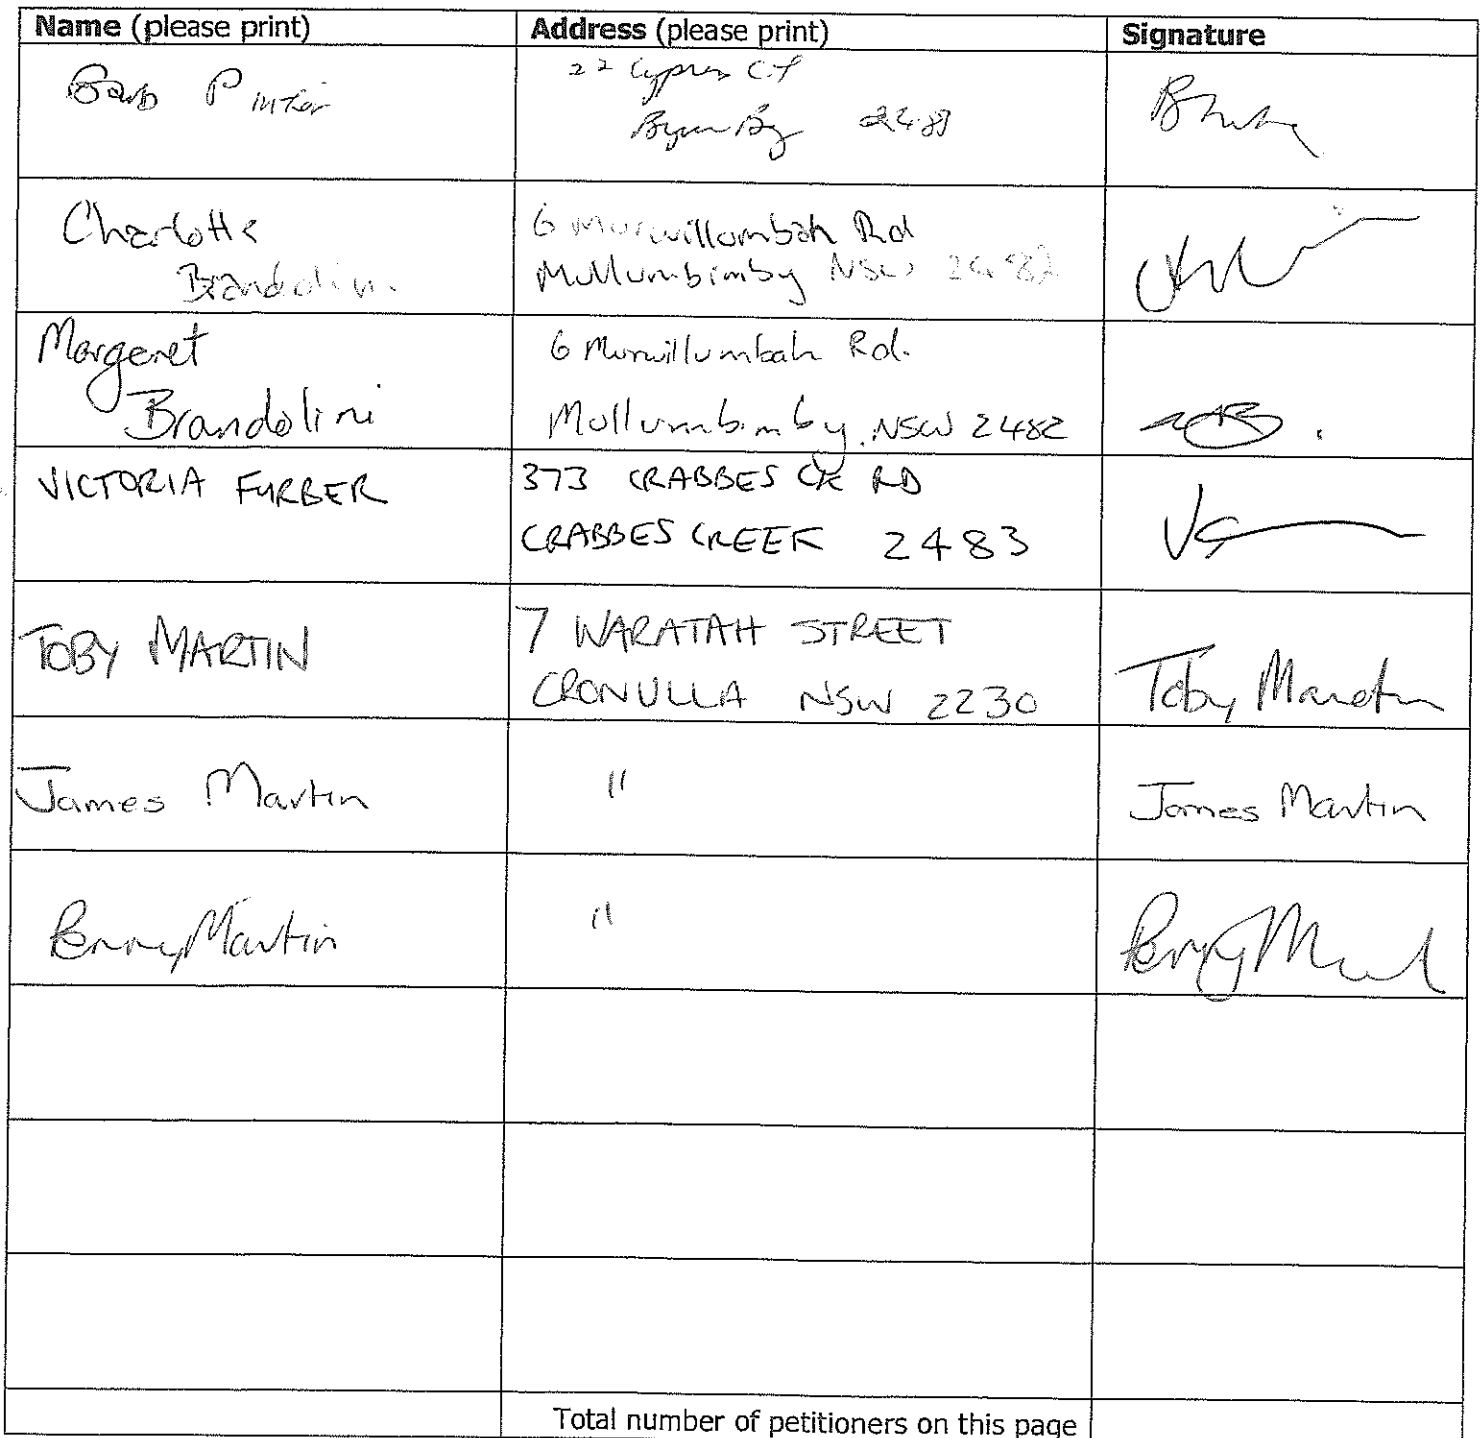 Name (please print) Address (please print) Signature
Barb 22 Cypress Ct
Byron Bay 2481
Charlotte 6 Murwillumbah Rd
Brandolini Mullumbimby NSW 2482
Margeret 6 Murwillumbah Rd.
Brandolini Mullumbimby. NSW 2482
VICTORIA FURBER 373 CRABBES CK RD
CRABBES CREEK 2483
TOBY MARTIN 7 WARATAH STREET
CRONULLA NSW 2230 Toby Martin
James Martin " James Martin
Penny Martin "
Total number of petitioners on this page